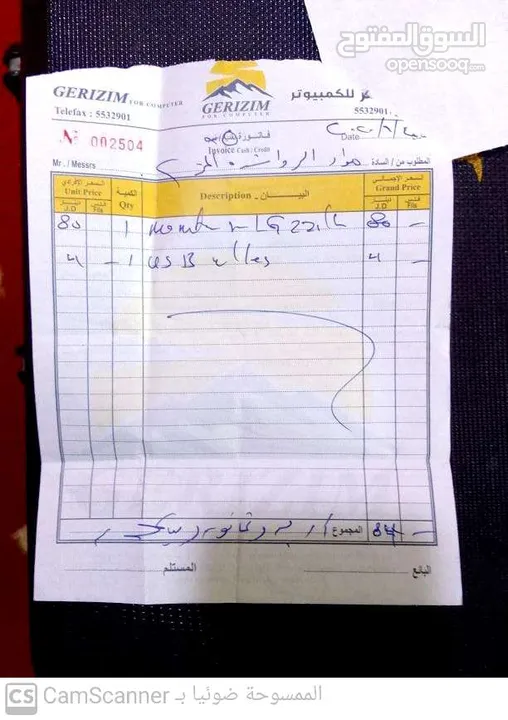 السوق المفتوح
opensooq.com
GERIZIM FOR COMPUTER
Telefax : 5532901
GERIZIM
FOR COMPUTER
للكمبيوتر
5532901
№ 002504
فاتورة
Invoice Cash / Credit
Date
Mr. / Messrs
المطلوب من / السادة
السعر الإفرادي
Unit Price
دينار J.D
فلس Fils
الكمية
Qty
Description - البيــــان
السعر الإجمالي
Grand Price
دينار J.D
فلس Fils
80 1 LG 80 -
4 - 1 USB 4 -
المجموع 84 -
المستلم
البائع
CS CamScanner الممسوحة ضوئيا بـ